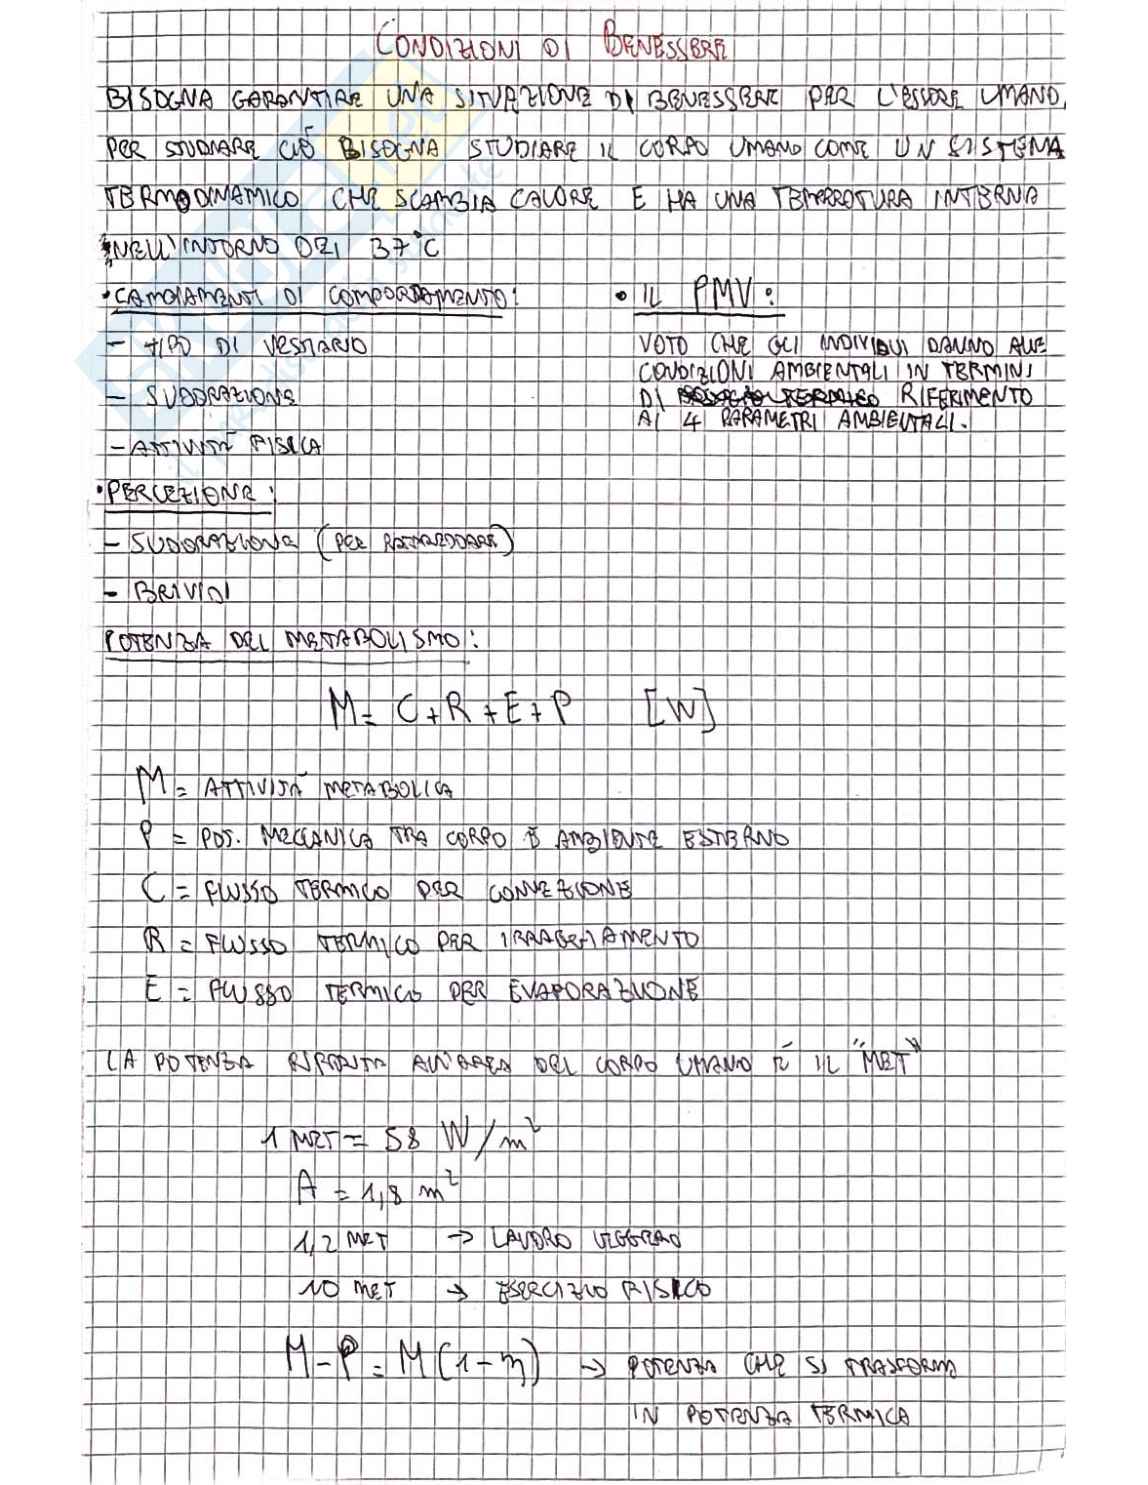 CONDIZIONI DI BENESSERE
BISOGNA GARANTIRE UNA SITUAZIONE DI BENESSERE PER L'ESSERE UMANO,
PER STUDIARE CIÒ BISOGNA STUDIARE IL CORPO UMANO COME UN SISTEMA
TERMODINAMICO CHE SCAMBIA CALORE E HA UNA TEMPERATURA INTERNA
NELL'INTORNO DEI 37°C
• CAMBIAMENTI DI COMPORTAMENTO:
- TIPO DI VESTIARIO
- SUDORAZIONE
- ATTIVITÀ FISICA
• IL PMV:
VOTO CHE GLI INDIVIDUI DANNO ALLE
CONDIZIONI AMBIENTALI IN TERMINI
DI RIFERIMENTO
AI 4 PARAMETRI AMBIENTALI.
• PERCEZIONE:
- SUDORAZIONE (PER RAFFREDDARE)
- BRIVIDI
POTENZA DEL METABOLISMO:
M = C + R + E + P [W]
M = ATTIVITÀ METABOLICA
P = POT. MECCANICA TRA CORPO E AMBIENTE ESTERNO
C = FLUSSO TERMICO PER CONVEZIONE
R = FLUSSO TERMICO PER IRRAGGIAMENTO
E = FLUSSO TERMICO PER EVAPORAZIONE
LA POTENZA RIFERITA ALL'AREA DEL CORPO UMANO È IL "MET"
1 MET = 58 W/m²
A = 1,8 m²
1,2 MET → LAVORO LEGGERO
10 MET → ESERCIZIO FISICO
M - P = M(1-η) → POTENZA CHE SI TRASFORMA
IN POTENZA TERMICA